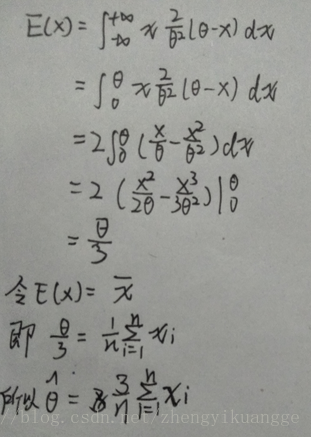 E(x) = ∫_{-∞}^{+∞} x \frac{2}{θ²}(θ-x) dx
= ∫_0^θ x \frac{2}{θ²}(θ-x) dx
= 2∫_0^θ (\frac{x}{θ} - \frac{x²}{θ²}) dx
= 2 (\frac{x²}{2θ} - \frac{x³}{3θ²}) |_0^θ
= \frac{θ}{3}
令 E(x) = \bar{x}
即 \frac{θ}{3} = \frac{1}{n} \sum_{i=1}^{n} x_i
所以 \hat{θ} = \frac{3}{n} \sum_{i=1}^{n} x_i
//blog.csdn.net/zhengyikuangge